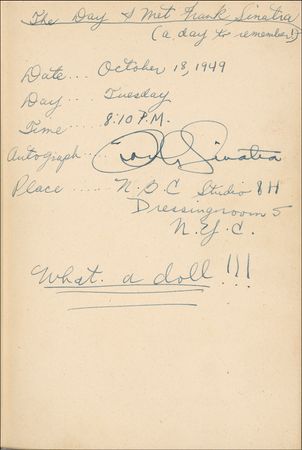 The Day I Met Frank Sinatra
(a day to remember!)
Date... October 18, 1949
Day... Tuesday
Time... 8:10 P.M.
Autograph... Frank Sinatra
Place ..... N.B.C Studio 8H
Dressingroom 5
N.Y.C.
What. a doll!!!